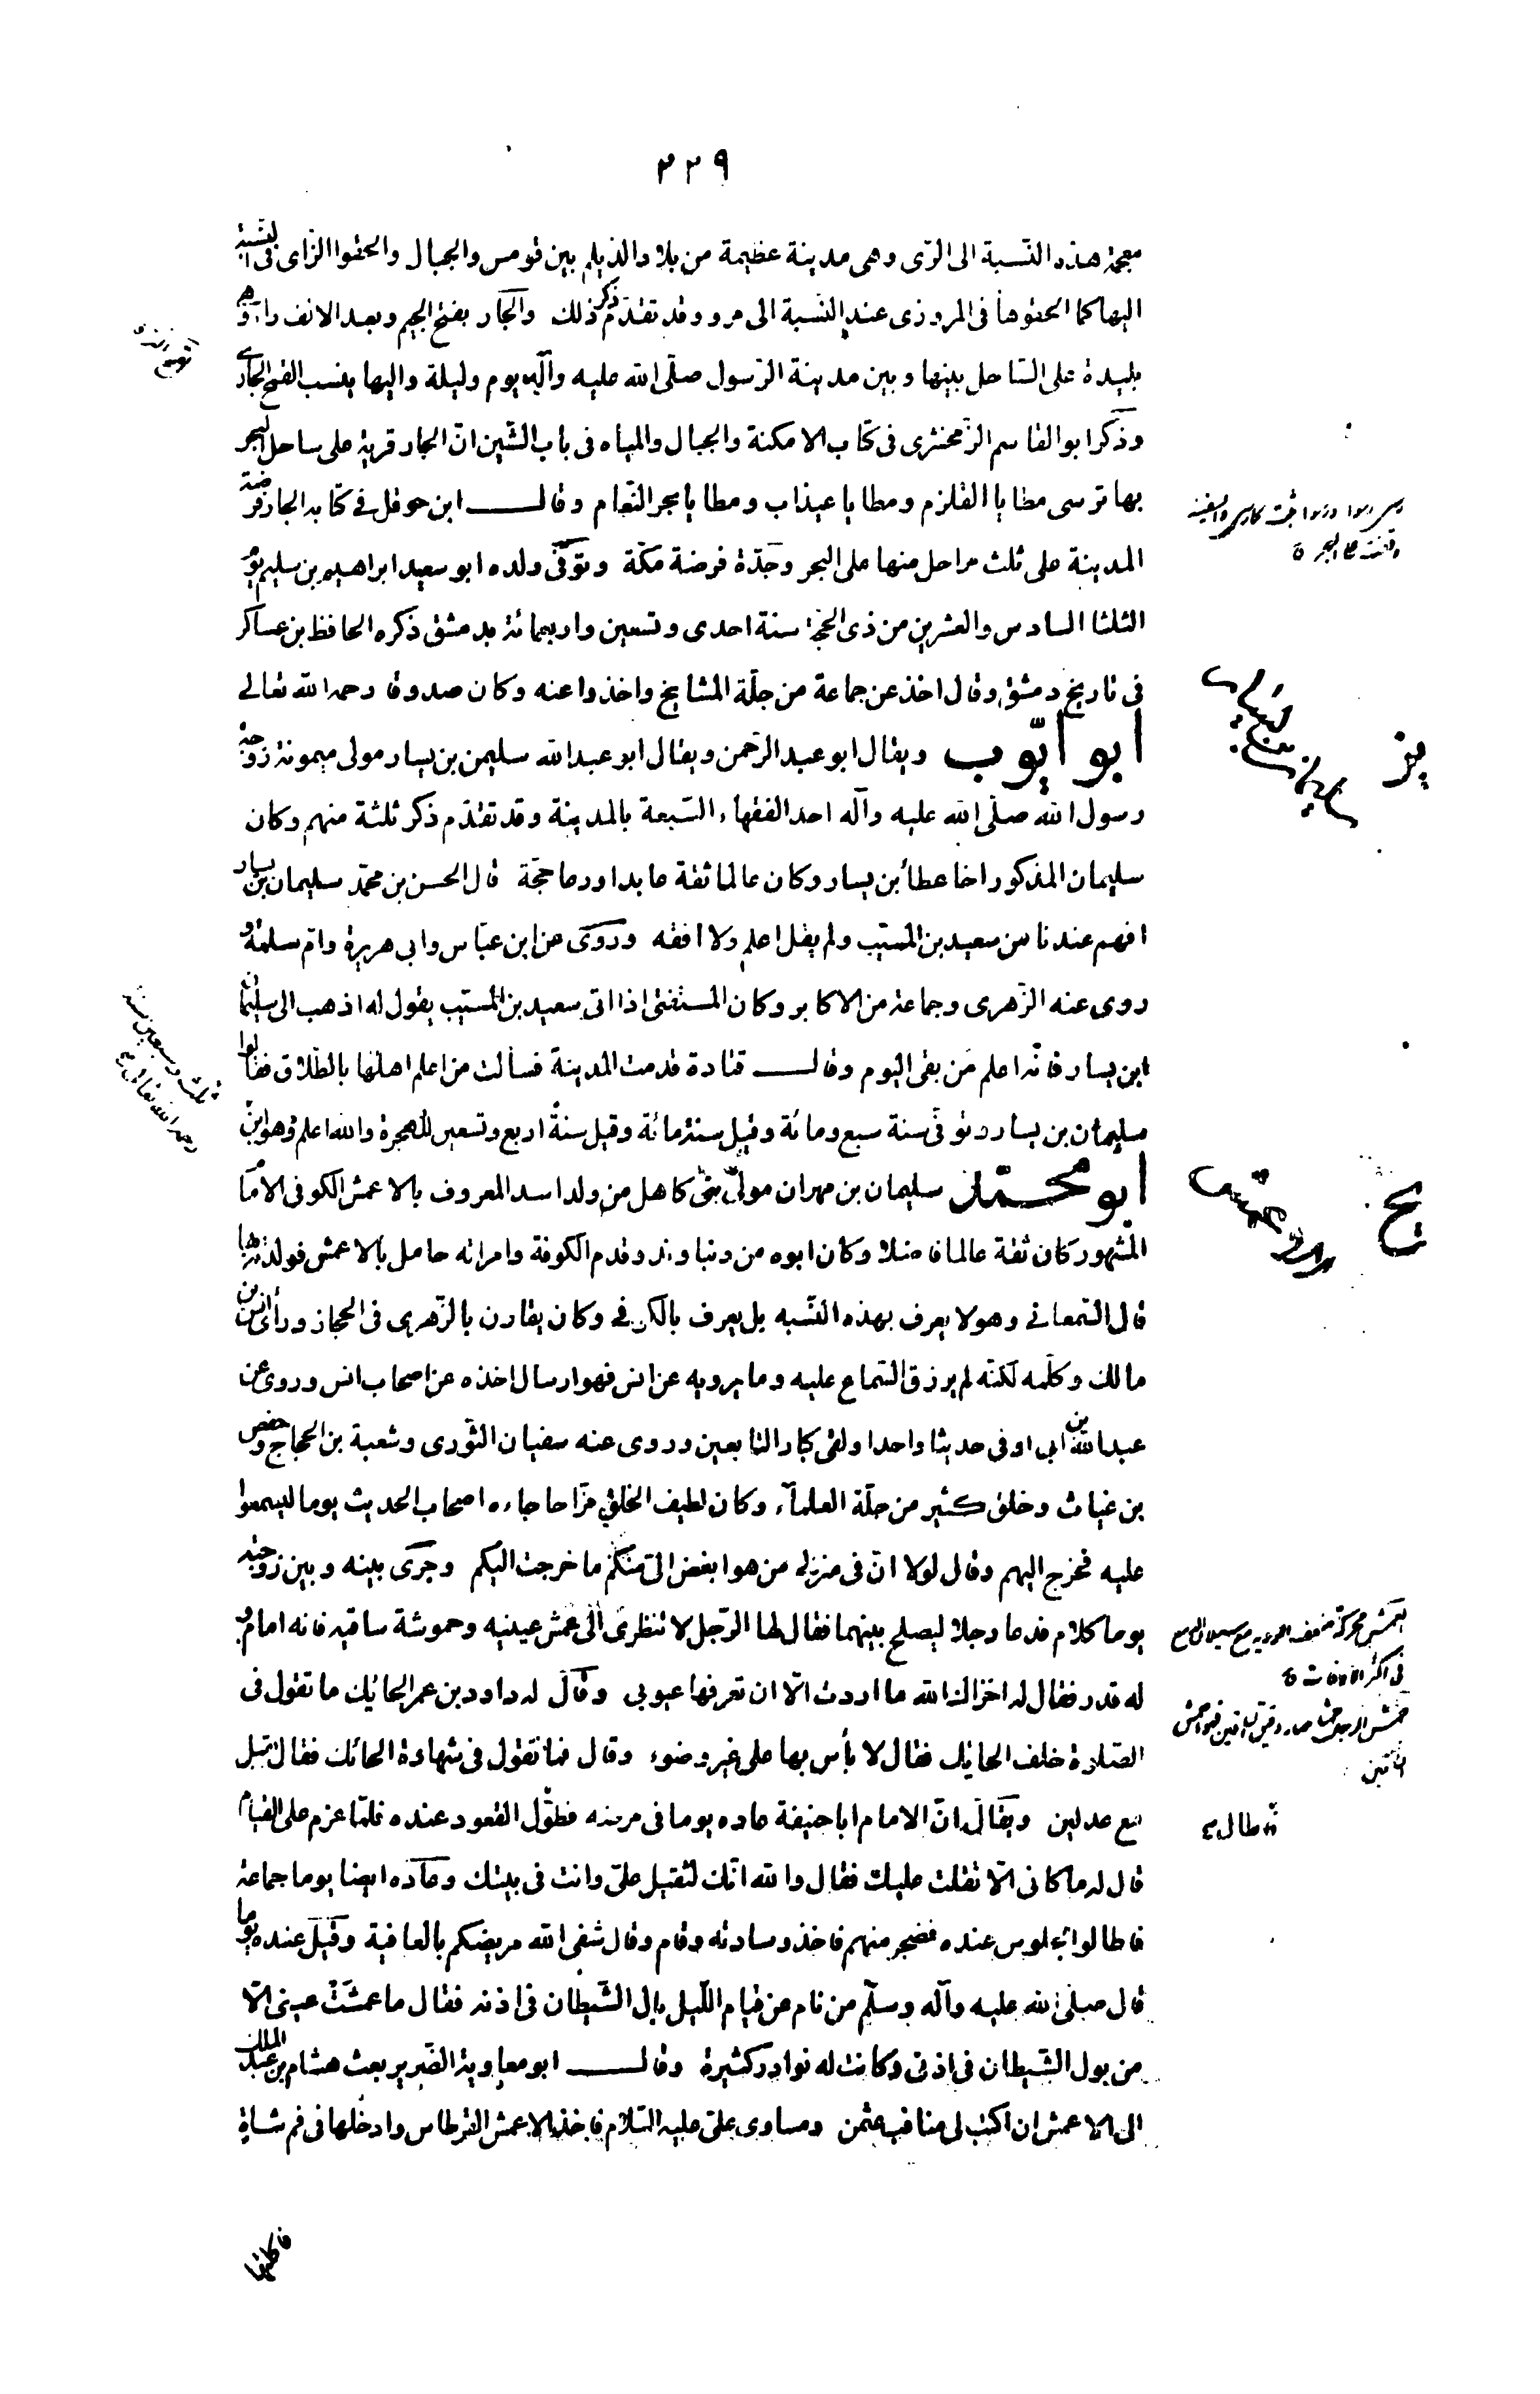 ٢٢٩
معجمة هذه النسبة الى الرّى وهى مدينة عظيمة من بلاد الديلم بين قومس والجبال والحقوا الزاى فى النسبة
اليها كما الحقوها فى المروزى عند النسبة الى مرو وقد تقدّم ذكر ذلك والجار بفتح الجيم وبعد الالف راء وهى
بليدة على السّاحل بينها وبين مدينة الرّسول صلّى الله عليه وآله يوم وليلة واليها ينسب القمح الجارى
وذكر ابو القاسم الزّمخشرى فى كتاب الامكنة والجبال والمياه فى باب الشّين انّ الجار قرية على ساحل البحر
بها ترسى مطايا القلزم ومطايا عيذاب ومطايا بحر النّعام وقال ابن حوقل فى كتابه الجار فرضة
المدينة على ثلث مراحل منها على البحر وجدّة فرضة مكّة وتوفّى ولده ابو سعيد ابراهيم بن سليم يوم
الثلثا السادس والعشرين من ذى الحجة سنة احدى وتسعين واربعمائة بدمشق ذكره الحافظ بن عساكر
فى تاريخ دمشق وقال اخذ عن جماعة من جلّة المشايخ واخذوا عنه وكان صدوقا رحمه الله تعالى
يز
سليمان بن يسار
أبو أيّوب ويقال ابو عبد الرّحمن ويقال ابو عبد الله سليمن بن يسار مولى ميمونة زوجة
رسول الله صلّى الله عليه وآله احد الفقهاء السّبعة بالمدينة وقد تقدّم ذكر ثلثة منهم وكان
سليمان المذكور اخا عطأ بن يسار وكان عالما ثقة عابدا ورعا حجّة قال الحسن بن محمّد سليمان بن يسار
افهم عندنا من سعيد بن المسيّب ولم يقل اعلم ولا افقه وروى عن ابن عبّاس وابى هريرة وامّ سلمة و
روى عنه الزّهرى وجماعة من الاكابر وكان المستفتى اذا اتى سعيد بن المسيّب يقول له اذهب الى سليمان
ابن يسار فانّه اعلم من بقى اليوم وقال قتادة قدمت المدينة فسألت من اعلم اهلها بالطّلاق فقالوا
سليمان بن يسار وتوفّى سنة سبع ومائة وقيل سنة مائة وقيل سنة اربع وتسعين للهجرة والله اعلم وهو ابن
ثلث وسبعين سنة
رحمه الله تعالى
يح
الاعمش
أبو محمّد سليمان بن مهران مولى بنى كاهل من ولد اسد المعروف بالاعمش الكوفى الامام
المشهور كان ثقة عالما فاضلا وكان ابوه من دنباوند وقدم الكوفة وامراته حامل بالاعمش فولدته بها
قال السّمعانى وهو لا يعرف بهذه النّسبه بل يعرف بالكوفى وكان يقارن بالزّهرى فى الحجاز ورأى انس بن
مالك وكلّمه لكنّه لم يرزق السّماع عليه وما يرويه عن انس فهو ارسال اخذه عن اصحاب انس وروى عن
عبد الله بن ابى اوفى حديثا واحدا ولقى كبار التابعين وروى عنه سفيان الثّورى وشعبة بن الحجاج وحفص
بن غياث وخلق كثير من جلّة العلمآء وكان لطيف الخلق مزّاحا جاءه اصحاب الحديث يوما ليسمعوا
عليه فخرج اليهم وقال لولا انّ فى منزلى من هو ابغض الىّ منكم ما خرجت اليكم وجرى بينه وبين زوجته
يوما كلام فدعا رجلا ليصلح بينهما فقال لها الرّجل لا تنظرى الى عمش عينيه وحموشة ساقيه فانه امام و
له قدر فقال له اخزاك الله ما اردت الّا ان تعرفها عيوبى وقال له داود بن عمر الحائك ما تقول فى
الصّلوة خلف الحائك فقال لا بأس بها على غير وضوء وقال فما تقول فى شهادة الحائك فقال تقبل
مع عدلين ويقال انّ الامام ابا حنيفة عاده يوما فى مرضه فطوّل القعود عنده فلمّا عزم على القيام
قال له ما كانى الّا ثقلت عليك فقال والله انّك لثقيل علىّ وانت فى بيتك وعاده ايضا يوما جماعة
فاطالوا الجلوس عنده فضجر منهم فاخذ وسادته وقام وقال شفى الله مريضكم بالعافية وقيل عنده يوما
قال صلى الله عليه وآله وسلّم من نام عن قيام اللّيل بال الشّيطان فى اذنه فقال ما عمشت عينى الّا
من بول الشّيطان فى اذنى وكانت له نوادر كثيرة وقال ابو معاوية الضّرير بعث هشام بن عبد الملك
الى الاعمش ان اكتب لى مناقب عثمن ومساوى علىّ عليه السّلام فاخذ الاعمش القرطاس وادخلها فى فم شاة
العمش محركة ضعف الرؤية مع سيلان الدمع
فى اكثر الاوقات